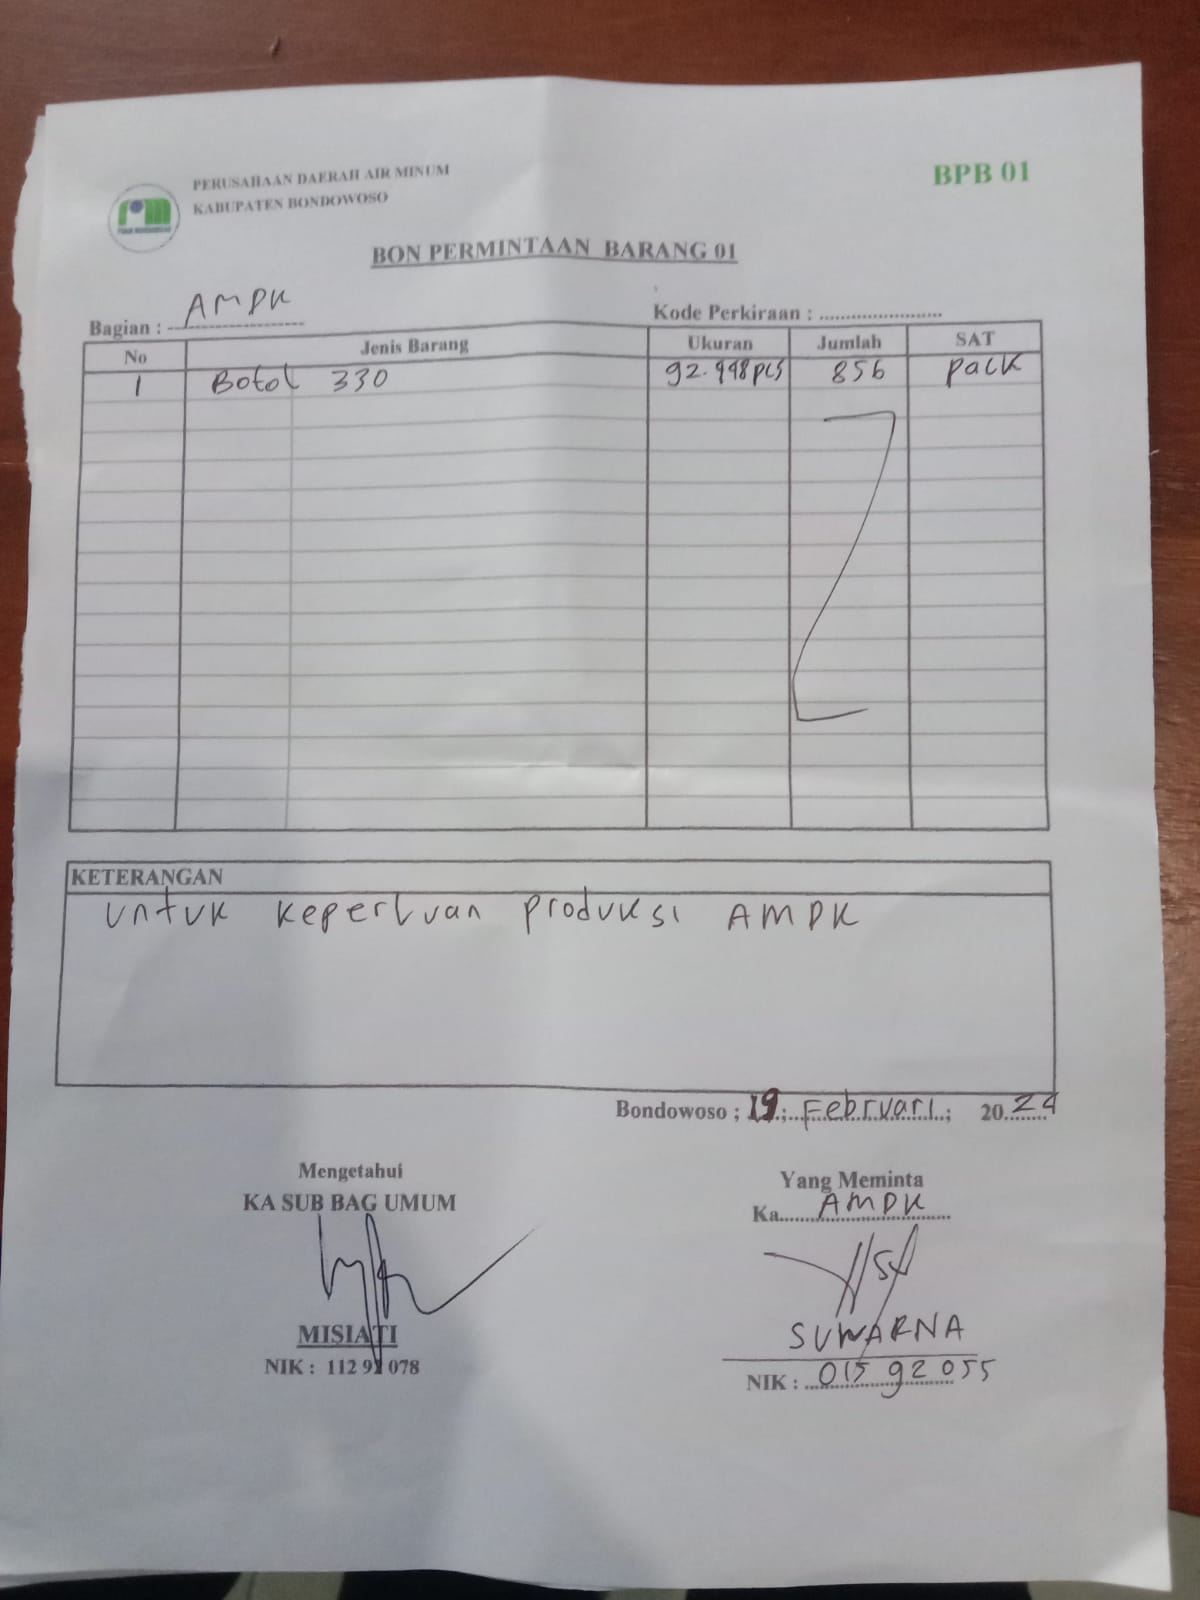 PERUSAHAAN DAERAH AIR MINUM
KABUPATEN BONDOWOSO
BPB 01
BON PERMINTAAN BARANG 01
Bagian : AMDK
Kode Perkiraan : ........................
No Jenis Barang Ukuran Jumlah SAT
1 Botol 330 pcs 856 pack
KETERANGAN
untuk keperluan produksi AMDK
Bondowoso ; 19 ; Februari ; 2024
Mengetahui
KA SUB BAG UMUM
Yang Meminta
Ka AMDK
MISIATI
NIK : 112 92 078
SUWARNA
NIK : 015 92 055